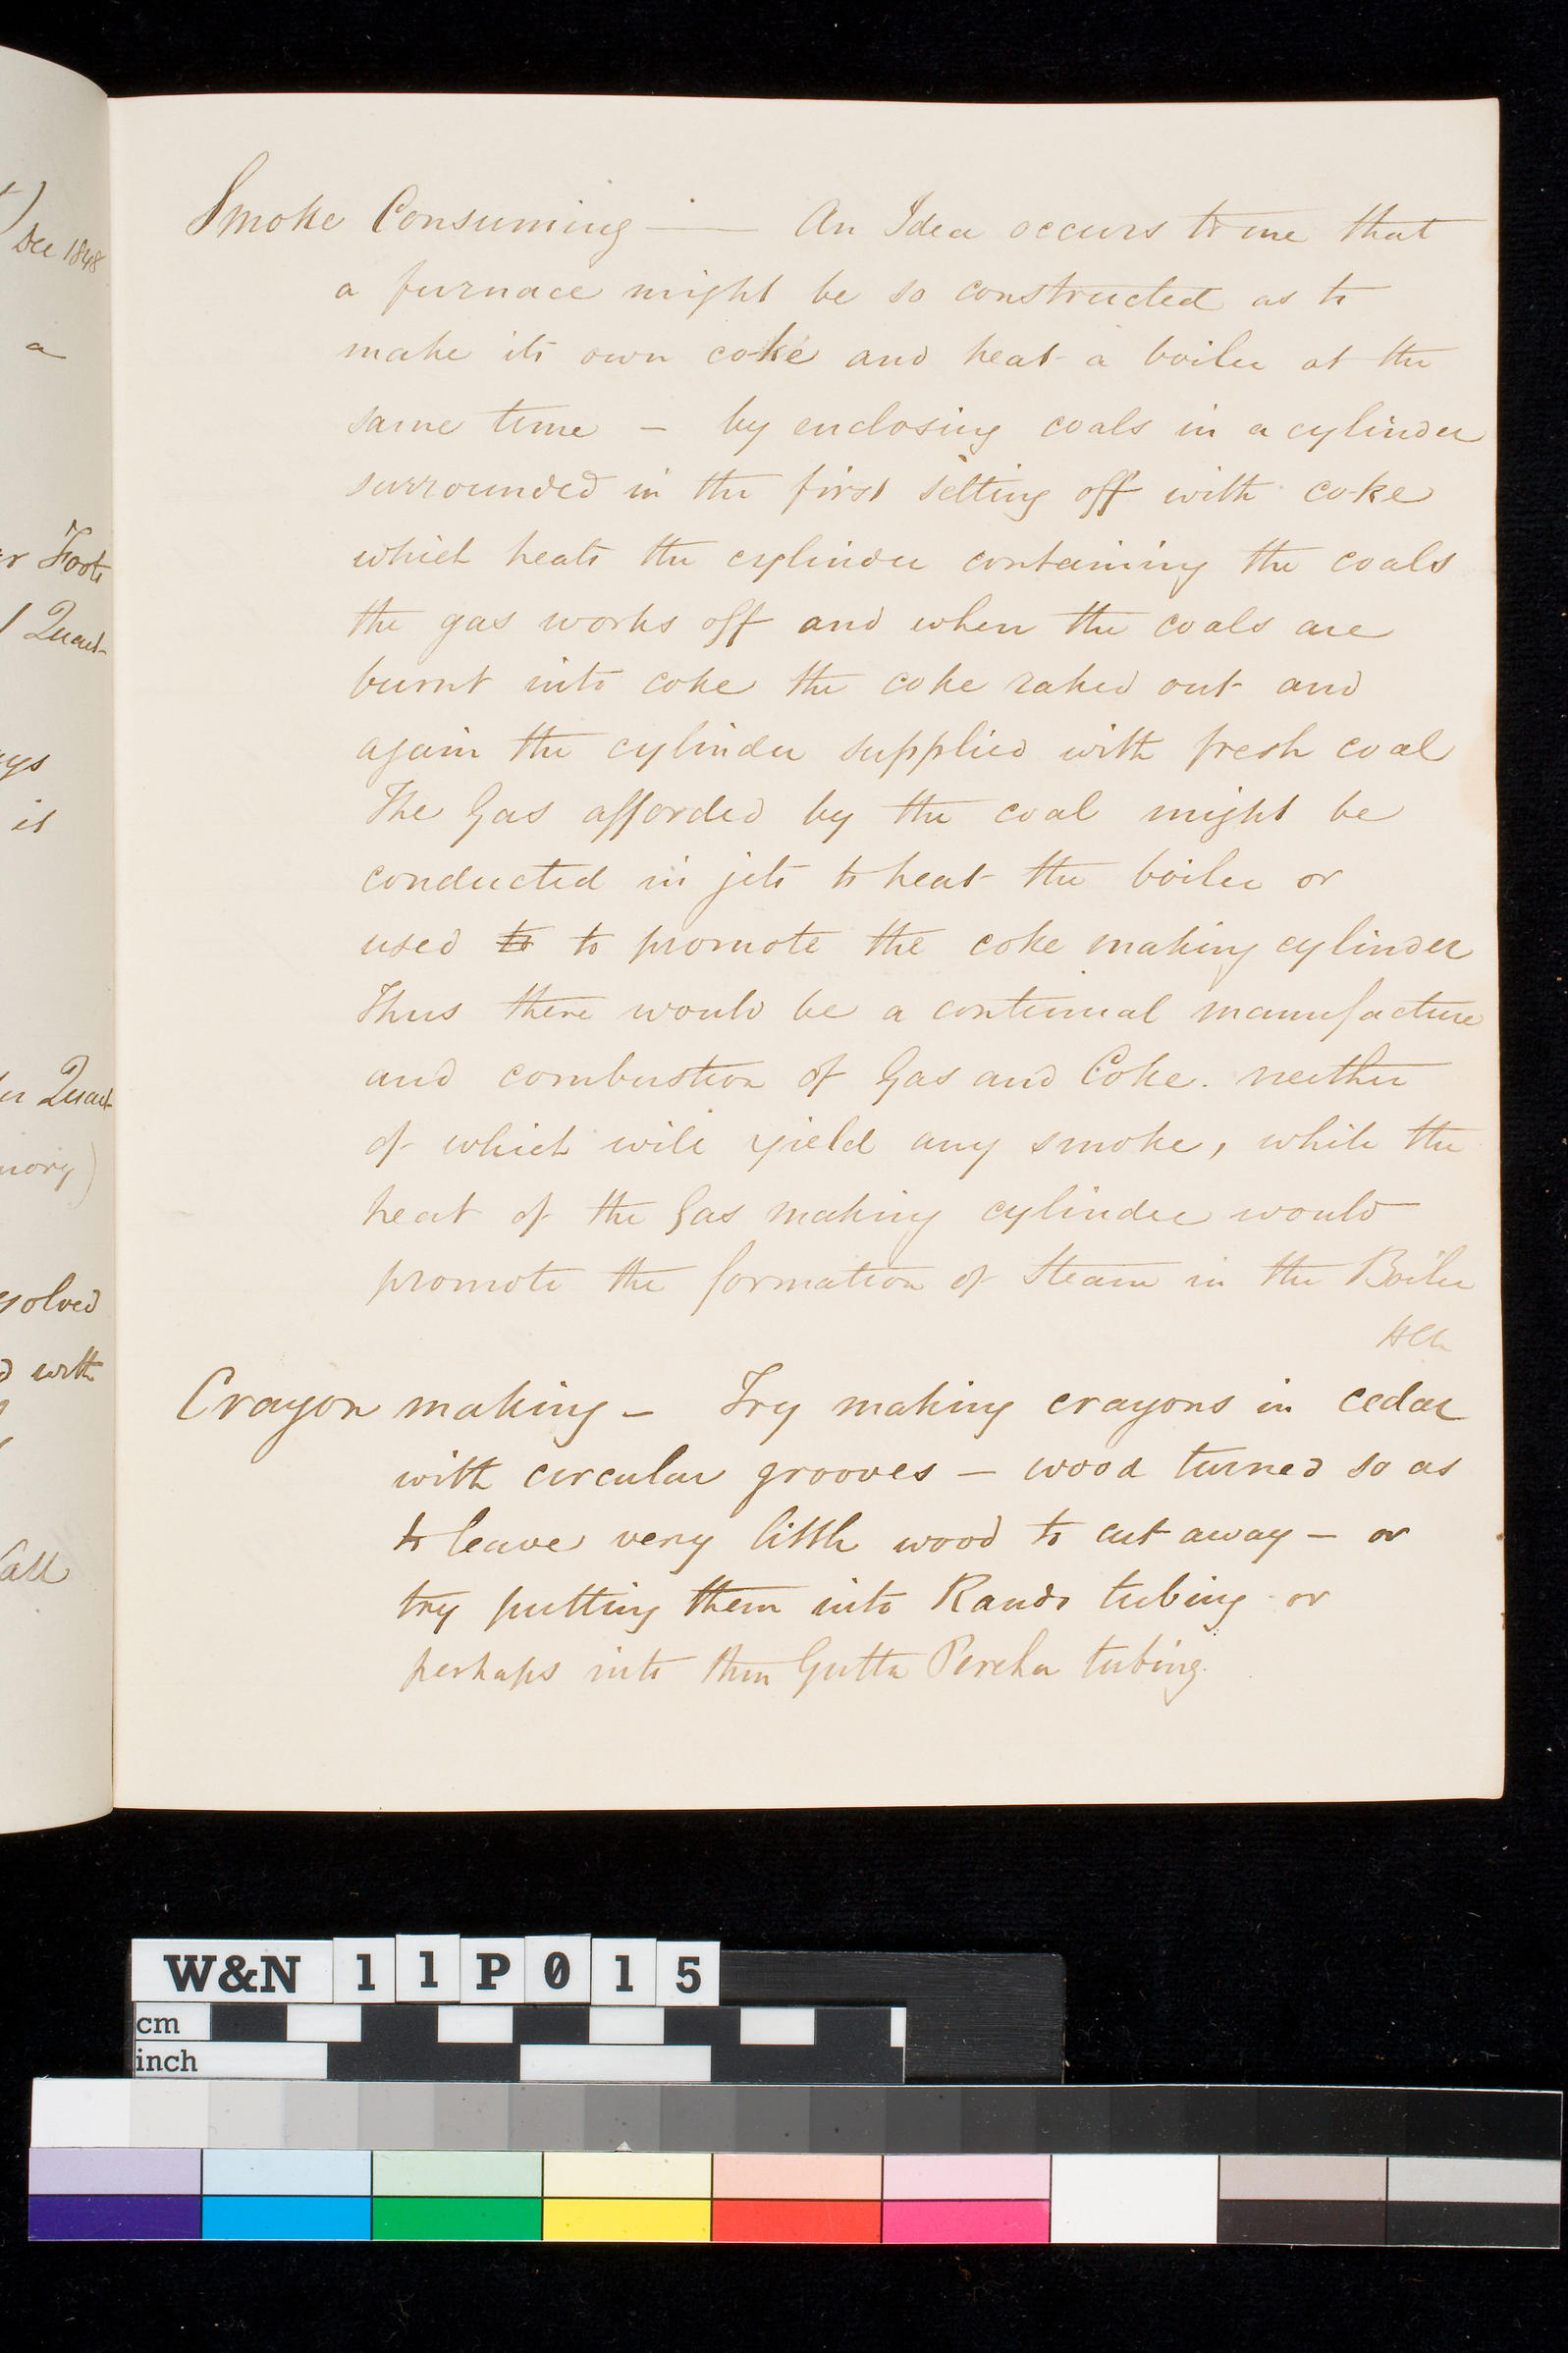 Dec 1848
a
r Foots
1 Quart
ys
it
Quart
solved
with
all
Smoke Consuming — An Idea occurs to me that
a furnace might be so constructed as to
make its own coke and heat a boiler at the
same time - by enclosing coals in a cylinder
surrounded in the first setting off with coke
which heats the cylinder containing the coals
the gas works off and when the coals are
burnt into coke the coke raked out and
again the cylinder supplied with fresh coal
The Gas afforded by the coal might be
conducted in jets to heat the boiler or
used to to promote the coke making cylinder
Thus there would be a continual manufacture
and combustion of Gas and Coke. neither
of which will yield any smoke, while the
heat of the Gas making cylinder would
promote the formation of Steam in the Boiler
Crayon making - Try making crayons in cedar
with circular grooves - wood turned so as
to leave very little wood to cut away - or
try putting them into Rands tubing or
perhaps into thin Gutta Percha tubing.
W&N 11P015
cm
inch